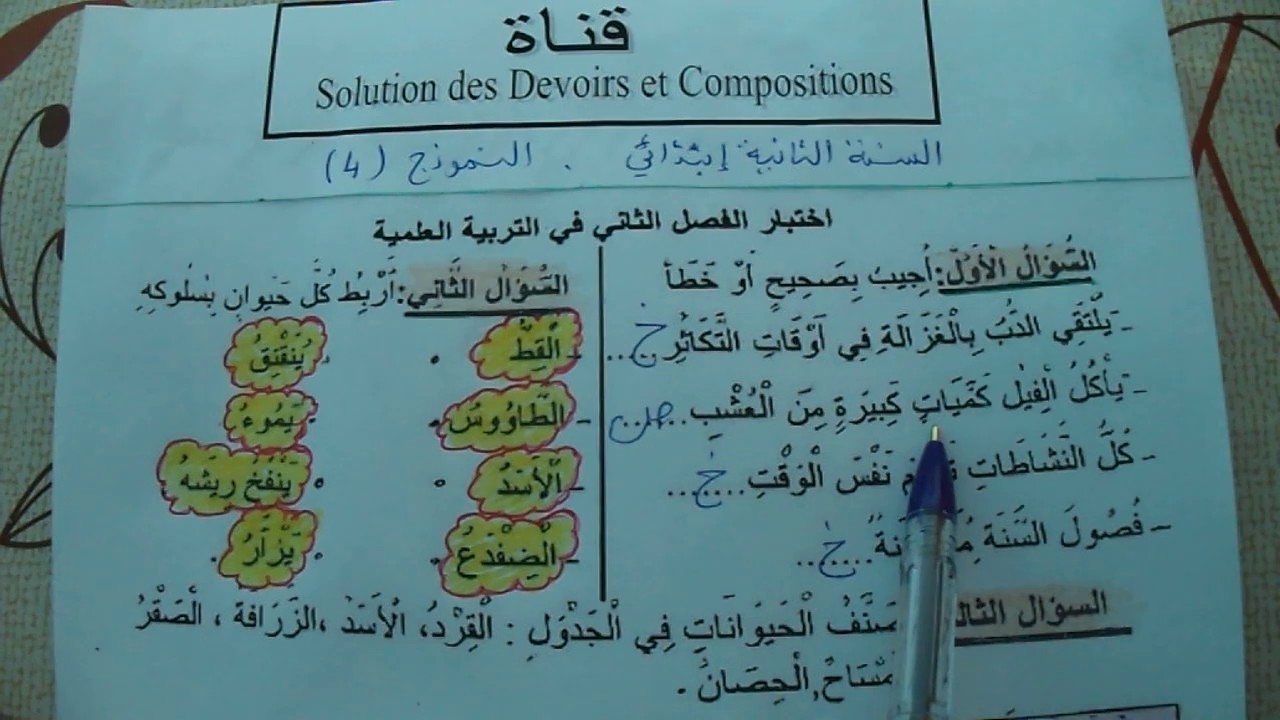 قناة
Solution des Devoirs et Compositions
السنة الثانية إبتدائي . النموذج (4)
اختبار الفصل الثاني في التربية العلمية
السُّؤَالُ الْأَوَّلُ: أُجِيبُ بِصَحِيحٍ أَوْ خَطَأ
- يَلْتَقِي الدُّبُّ بِالْغَزَالَةِ فِي أَوْقَاتِ التَّكَاثُرِ ...خ...
- يَأْكُلُ الْفِيلُ كَمِّيَاتٍ كَبِيرَةٍ مِنَ الْعُشْبِ ..ص..
- كُلُّ النَّشَاطَاتِ نَفْسَ الْوَقْتِ ...خ...
- فُصُولَ السَّنَةِ ...خ...
السُّؤَالُ الثَّانِي: أَرْبِطُ كُلَّ حَيَوَانٍ بِسُلُوكِهِ
- الْقِطُّ • • يُنَقْنِقُ
- الطَّاوُوسُ • • يَمُوءُ
- الْأَسَدُ • • يَنْفُخُ رِيشَهُ
- الْضِفْدَعُ • • يَزْأَرُ
السؤال صَنِّفُ الْحَيَوَانَاتِ فِي الْجَدْوَلِ : الْقِرْدُ، الْأَسَدُ ،الزَّرَافَةُ ، الْصَقْرُ
,الْحِصَانُ .